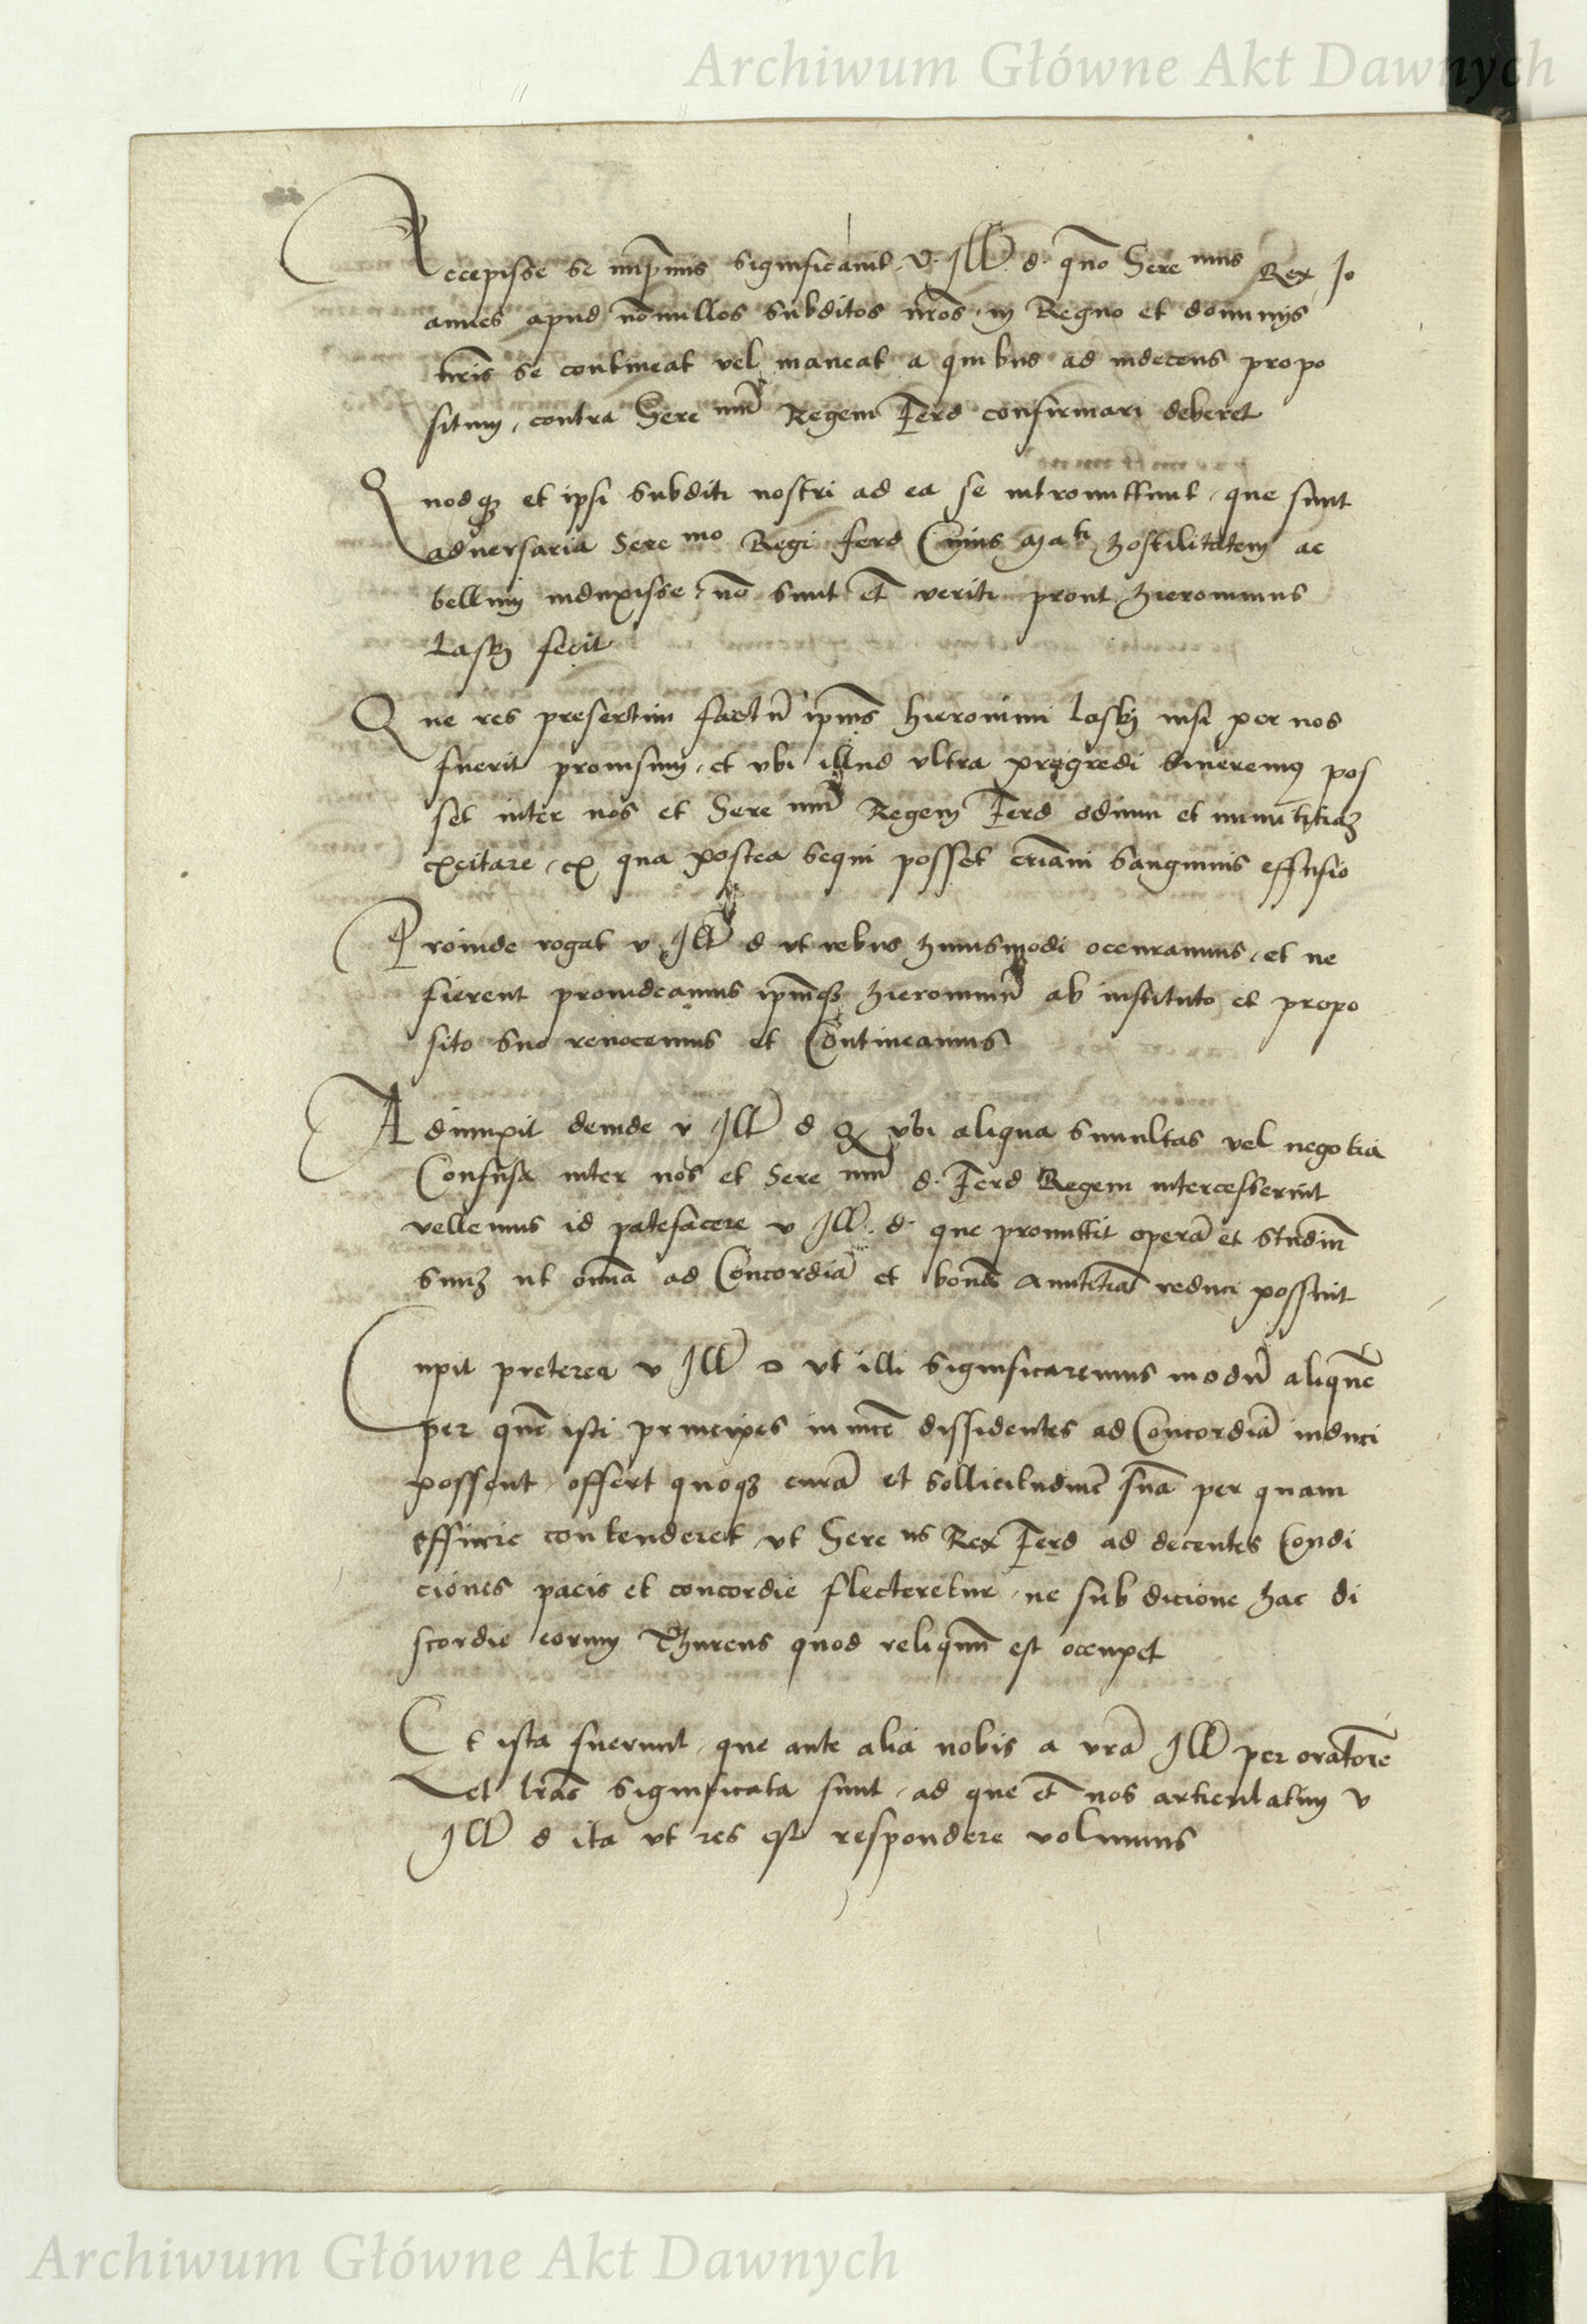 Archiwum Główne Akt Dawnych
Accepisse se imp̄mis significavit v. Ill̄ d. quō Sere nmus Rex Jo
annes apud nōnullos subditos nr̄os in Regno et dominijs
nr̄is se contineat vel maneat a quibus ad indecens propo
situm, contra Sere nmū Regem Ferd confirmari deberet
Quodqȝ et ipsi subditi nostri ad ea se intromittunt, que sunt
adversaria Sere mo Regi ferd Cuius Ma ti hostilitatem ac
bellum induxisse nō sunt et̄ veriti prout hieronimus
Lasky fecit
Que res presertim factū ipīus hieronimi Lasky nisi per nos
fuerit provisum, et vbi illud vltra progredi sineremus pos
set inter nos et Sere nmū Regem Ferd odium et inimicitiaȝ
excitare, ex qua postea sequi posset etiam̄ sanguinis effusio
Proinde rogat v Ill̄ d vt rebus huiusmodi occuramus, et ne
fierent provideamus ipm̄qȝ hieronimū ab instituto et propo
sito suo revocemus et Contineamus
Adiunxit deinde v Ill̄ d qȝ vbi aliqua simultas vel negotia
Confusa inter nos et Sere nmū d. Ferd Regem intercesserint
vellemus id patefacere v Ill̄. d. que promittit operā et studiū
suuȝ ut omīa ad Concordiā et bonā amicitiā reduci possint
Cupit preterea v Ill̄ d vt illi significaremus modū aliquē
per quē isti principes invicē dissidentes ad Concordiā induci
possent, offert quoqȝ curā et sollicitudinē suā per quam
efficere contenderet vt Sere us Rex Ferd ad decentes Condi
ciones pacis et concordie flecteretur, ne sub dicione hac di
scordie eorum Thurcus quod reliquū est occupet
Et ista fuerunt, que ante alia nobis a vrā Ill̄ per oratorē
et lrās significata sunt, ad que et̄ nos articulatim v
Ill̄ d ita vt res est respondere volumus
Archiwum Główne Akt Dawnych